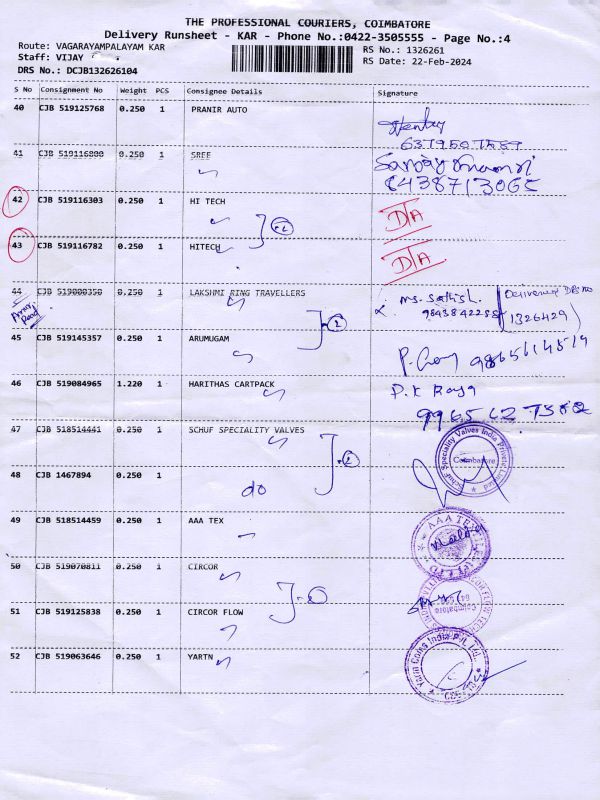 THE PROFESSIONAL COURIERS, COIMBATORE
Delivery Runsheet - KAR - Phone No.:0422-3505555 - Page No.:4
Route: VAGARAYAMPALAYAM KAR
RS No.: 1326261
Staff: VIJAY
RS Date: 22-Feb-2024
DRS No.: DCJB132626104
S No Consignment No Weight PCS Consignee Details Signature
40 CJB 519125768 0.250 1 PRANIR AUTO
41 CJB 519116800 0.250 1 SREE
8438713065
42 CJB 519116303 0.250 1 HI TECH DTA
43 CJB 519116782 0.250 1 HITECH DTA
44 CJB 519000350 0.250 1 LAKSHMI RING TRAVELLERS Ms. Sathish.
9843842258
1326429
45 CJB 519145357 0.250 1 ARUMUGAM
9865614519
46 CJB 519084965 1.220 1 HARITHAS CARTPACK P.K Raya
47 CJB 518514441 0.250 1 SCHUF SPECIALITY VALVES
Schuf Speciality Valves India Private Limited
Coimbatore
48 CJB 1467894 0.250 1
do
49 CJB 518514459 0.250 1 AAA TEX
50 CJB 519070811 0.250 1 CIRCOR
51 CJB 519125838 0.250 1 CIRCOR FLOW
Coimbatore
52 CJB 519063646 0.250 1 YARTN
Yarn Cons India Pvt. Ltd.